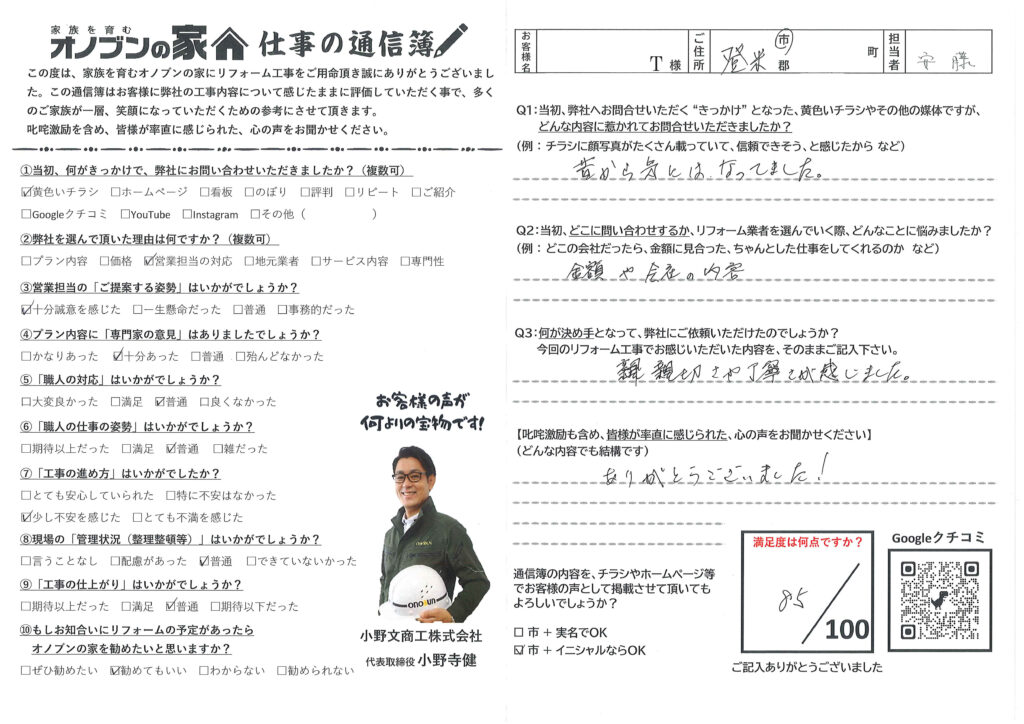 家族を育む
オノブンの家 仕事の通信簿
この度は、家族を育むオノブンの家にリフォーム工事をご用命頂き誠にありがとうございまし
た。この通信簿はお客様に弊社の工事内容について感じたままに評価していただく事で、多く
のご家族が一層、笑顔になっていただくための参考にさせて頂きます。
叱咤激励を含め、皆様が率直に感じられた、心の声をお聞かせください。
①当初、何がきっかけで、弊社にお問い合わせいただきましたか？（複数可）
☑黄色いチラシ □ホームページ □看板 □のぼり □評判 □リピート □ご紹介
□Googleクチコミ □YouTube □Instagram □その他（　　　　　）
②弊社を選んで頂いた理由は何ですか？（複数可）
□プラン内容 □価格 ☑営業担当の対応 □地元業者 □サービス内容 □専門性
③営業担当の「ご提案する姿勢」はいかがでしょうか？
☑十分誠意を感じた □一生懸命だった □普通 □事務的だった
④プラン内容に「専門家の意見」はありましたでしょうか？
□かなりあった ☑十分あった □普通 □殆んどなかった
⑤「職人の対応」はいかがでしょうか？
□大変良かった □満足 ☑普通 □良くなかった
⑥「職人の仕事の姿勢」はいかがでしょうか？
□期待以上だった □満足 ☑普通 □雑だった
⑦「工事の進め方」はいかがでしたか？
□とても安心していられた □特に不安はなかった
☑少し不安を感じた □とても不満を感じた
⑧現場の「管理状況（整理整頓等）」はいかがでしょうか？
□言うことなし □配慮があった ☑普通 □できていないかった
⑨「工事の仕上がり」はいかがでしょうか？
□期待以上だった □満足 ☑普通 □期待以下だった
⑩もしお知合いにリフォームの予定があったら
オノブンの家を勧めたいと思いますか？
□ぜひ勧めたい ☑勧めてもいい □わからない □勧められない
お客様の声が
何よりの宝物です!
ONOBUN
小野文商工株式会社
代表取締役 小野寺健
お客様名 T 様 ご住所 登米 市 郡 町 担当者 安藤
Q1：当初、弊社へお問合せいただく “きっかけ” となった、黄色いチラシやその他の媒体ですが、
どんな内容に惹かれてお問合せいただきましたか？
（例：チラシに顔写真がたくさん載っていて、信頼できそう、と感じたから など）
昔から気にはなってました。
Q2：当初、どこに問い合わせするか、リフォーム業者を選んでいく際、どんなことに悩みましたか？
（例：どこの会社だったら、金額に見合った、ちゃんとした仕事をしてくれるのか など）
金額や会社の内容
Q3：何が決め手となって、弊社にご依頼いただけたのでしょうか？
今回のリフォーム工事でお感じいただいた内容を、そのままご記入下さい。
親切さや丁寧さが感じました。
【叱咤激励も含め、皆様が率直に感じられた、心の声をお聞かせください】
（どんな内容でも結構です）
ありがとうございました！
通信簿の内容を、チラシやホームページ等
でお客様の声として掲載させて頂いても
よろしいでしょうか？
□ 市 + 実名でOK
☑ 市 + イニシャルならOK
満足度は何点ですか？
85
/100
Googleクチコミ
ご記入ありがとうございました